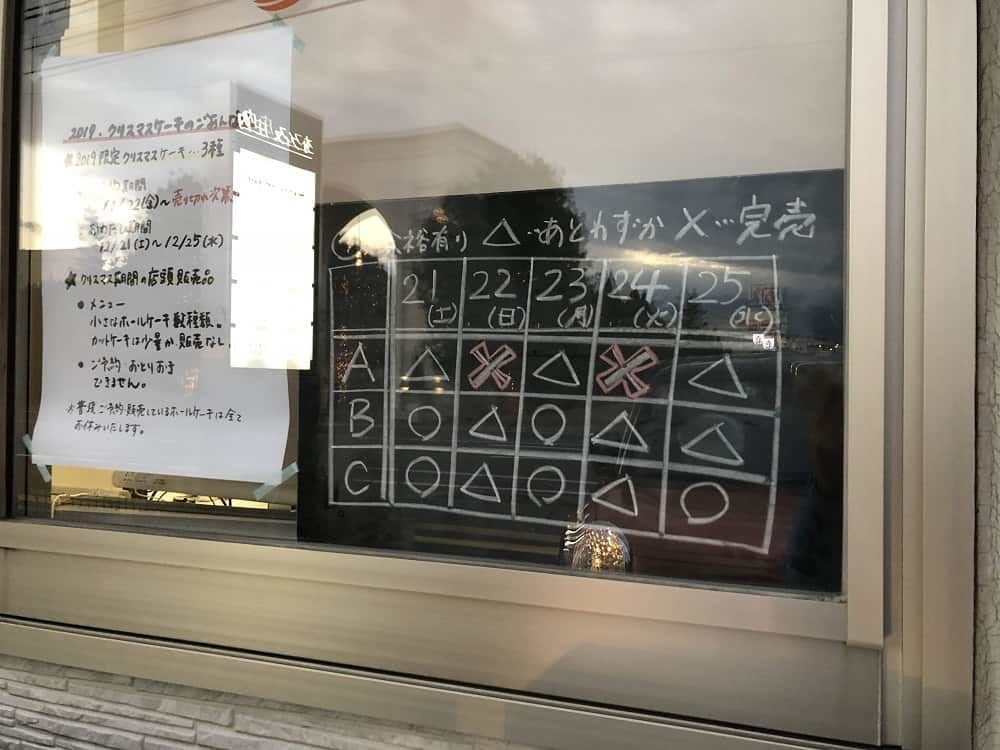 2019.クリスマスケーキのごあんな
2019限定クリスマスケーキ…3種
期間
売り切れ次第
期間
12/21(土)〜12/25(水)
★クリスマス期間の店頭販売品
● メニュー
小さなホールケーキ数種類。
カットケーキは少量か販売なし。
● ご予約 おとりおき
できません。
※普段ご予約・販売しているホールケーキは全て
お休みいたします。
裕有り △…あとわずか ×…完売
21 22 23 24 25
(土) (日) (月) (火) (水)
A △ × △ × △
B ○ △ ○ △ △
C ○ △ ○ △ ○